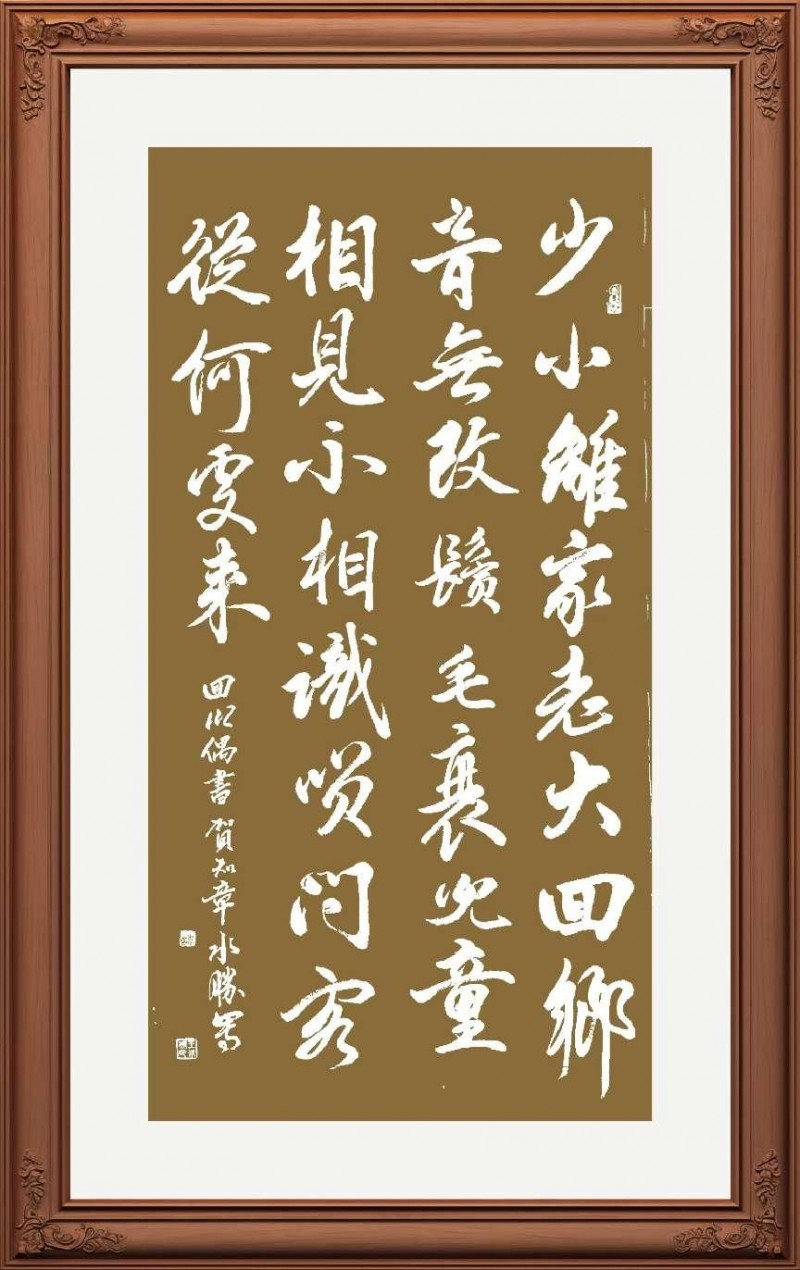 少小離家老大回鄉
音無改鬢毛衰兒童
相見不相識咲問客
從何處來
回鄉偶書 賀知章 永勝寫